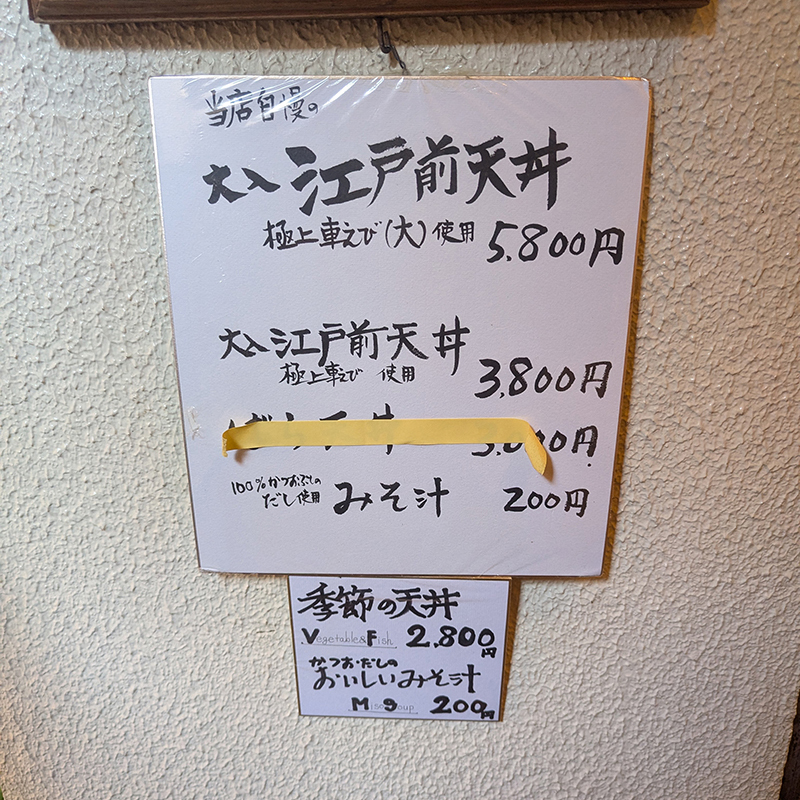 当店自慢の
大入江戸前天丼
極上車えび(大)使用 5,800円
大入江戸前天丼
極上車えび 使用 3,800円
100%かつおぶしの
だし使用 みそ汁 200円
季節の天丼
Vegetable&Fish 2,800円
かつおだしの
おいしいみそ汁
200円